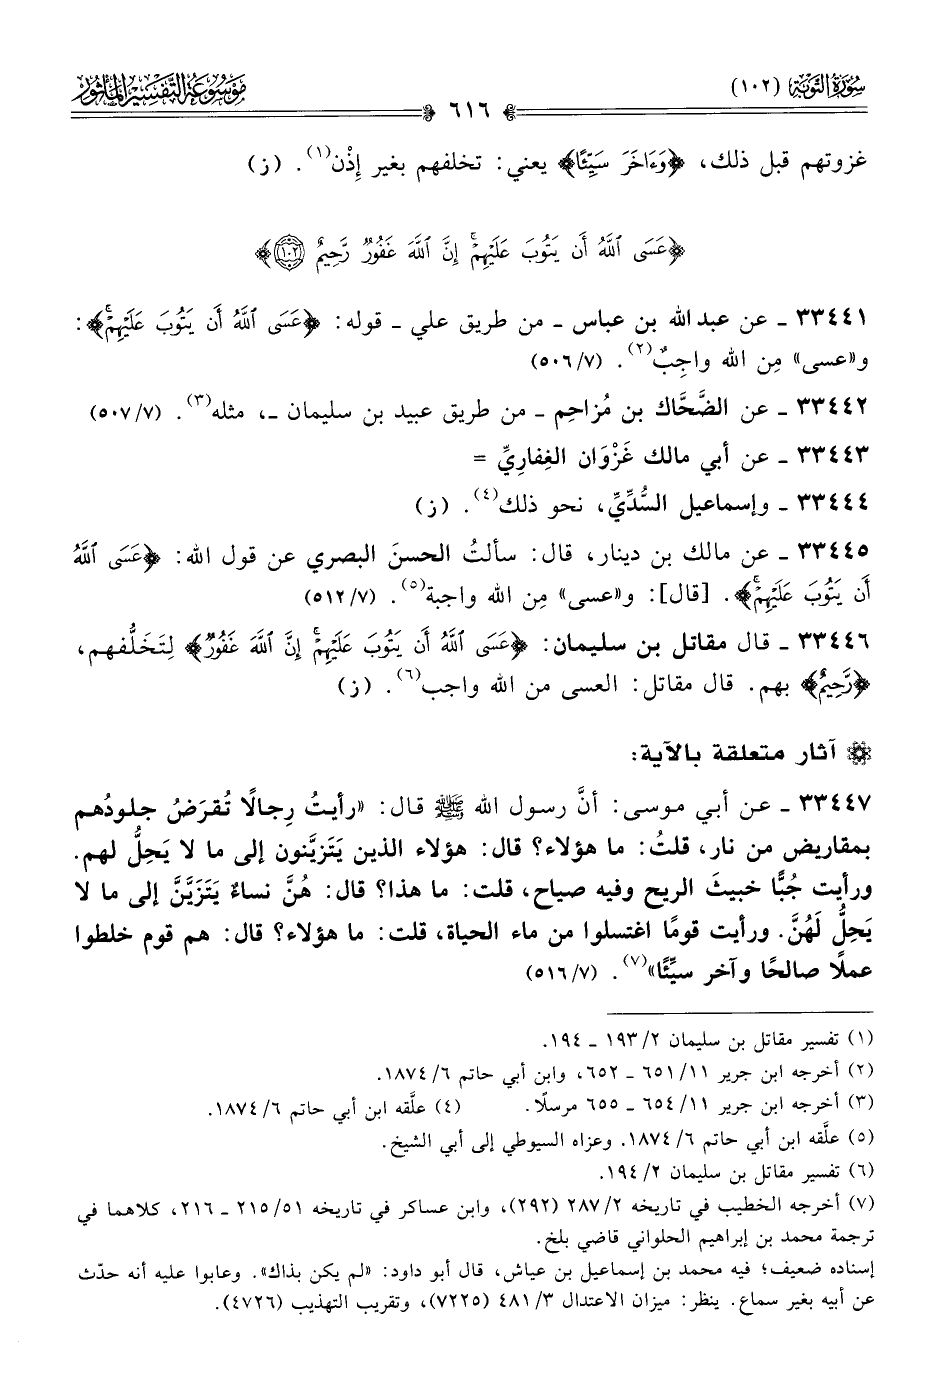 سُورَةُ التَّوْبَةِ (١٠٢)
٦١٦
مَوْسُوعَةُ التَّفْسِيرِ المَأْثُورِ
غزوتهم قبل ذلك، ﴿وَءَاخَرَ سَيِّئًا﴾ يعني: تخلفهم بغير إِذْن(١). (ز)
﴿عَسَى ٱللَّهُ أَن يَتُوبَ عَلَيْهِمْۚ إِنَّ ٱللَّهَ غَفُورٌ رَّحِيمٌ ١٠٢﴾
٣٣٤٤١ ـ عن عبد الله بن عباس ـ من طريق علي ـ قوله: ﴿عَسَى ٱللَّهُ أَن يَتُوبَ عَلَيْهِمْۚ﴾:
و«عسى» مِن الله واجِبٌ(٢). (٥٠٦/٧)
٣٣٤٤٢ ـ عن الضَّحَّاك بن مُزاحِم ـ من طريق عبيد بن سليمان ـ، مثله(٣). (٥٠٧/٧)
٣٣٤٤٣ ـ عن أبي مالك غَزْوَان الغِفاريِّ =
٣٣٤٤٤ ـ وإسماعيل السُّدِّيِّ، نحو ذلك(٤). (ز)
٣٣٤٤٥ ـ عن مالك بن دينار، قال: سألتُ الحسنَ البصري عن قول الله: ﴿عَسَى ٱللَّهُ
أَن يَتُوبَ عَلَيْهِمْۚ﴾. [قال]: و«عسى» مِن الله واجبة(٥). (٥١٢/٧)
٣٣٤٤٦ ـ قال مقاتل بن سليمان: ﴿عَسَى ٱللَّهُ أَن يَتُوبَ عَلَيْهِمْۚ إِنَّ ٱللَّهَ غَفُورٌ﴾ لِتَخَلُّفهم،
﴿رَّحِيمٌ﴾ بهم. قال مقاتل: العسى من الله واجب(٦). (ز)
آثار متعلقة بالآية:
٣٣٤٤٧ ـ عن أبي موسى: أنَّ رسول الله ﷺ قال: «رأيتُ رِجالًا تُقرَضُ جلودُهم
بمقاريض من نار، قلتُ: ما هؤلاء؟ قال: هؤلاء الذين يَتَزيَّنون إلى ما لا يَحِلُّ لهم.
ورأيت جُبًّا خبيثَ الريح وفيه صياح، قلت: ما هذا؟ قال: هُنَّ نساءٌ يَتَزَيَّنَّ إلى ما لا
يَحِلُّ لَهُنَّ. ورأيت قومًا اغتسلوا من ماء الحياة، قلت: ما هؤلاء؟ قال: هم قوم خلطوا
عملًا صالحًا وآخر سيِّئًا»(٧). (٥١٦/٧)
(١) تفسير مقاتل بن سليمان ١٩٣/٢ ـ ١٩٤.
(٢) أخرجه ابن جرير ٦٥١/١١ ـ ٦٥٢، وابن أبي حاتم ١٨٧٤/٦.
(٣) أخرجه ابن جرير ٦٥٤/١١ ـ ٦٥٥ مرسلًا. (٤) علَّقه ابن أبي حاتم ١٨٧٤/٦.
(٥) علَّقه ابن أبي حاتم ١٨٧٤/٦. وعزاه السيوطي إلى أبي الشيخ.
(٦) تفسير مقاتل بن سليمان ١٩٤/٢.
(٧) أخرجه الخطيب في تاريخه ٢٨٧/٢ (٢٩٢)، وابن عساكر في تاريخه ٢١٥/٥١ ـ ٢١٦، كلاهما في
ترجمة محمد بن إبراهيم الحلواني قاضي بلخ.
إسناده ضعيف؛ فيه محمد بن إسماعيل بن عياش، قال أبو داود: «لم يكن بذاك». وعابوا عليه أنه حدّث
عن أبيه بغير سماع. ينظر: ميزان الاعتدال ٤٨١/٣ (٧٢٢٥)، وتقريب التهذيب (٤٧٢٦).